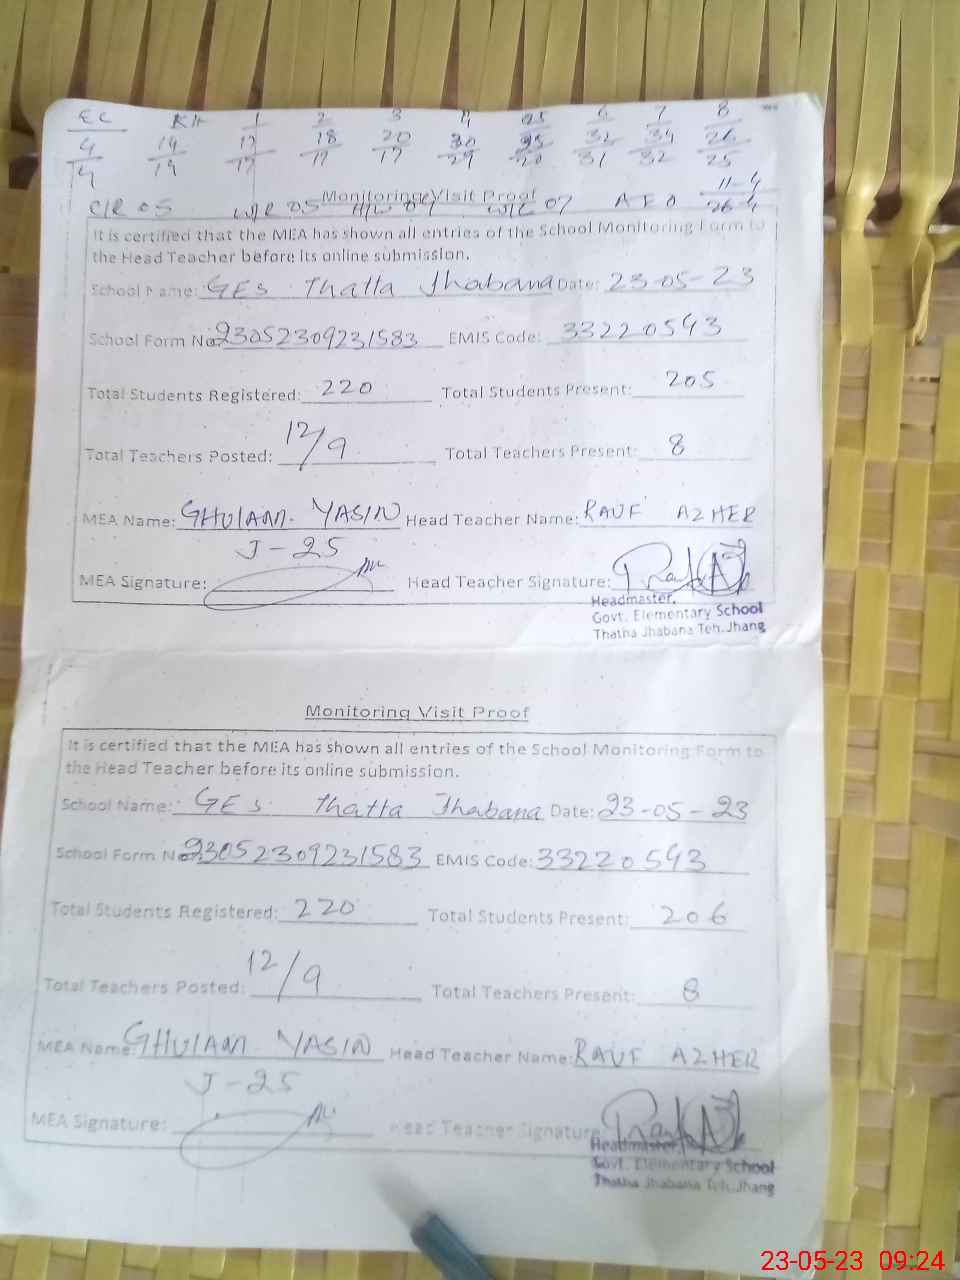 EC KH 1 2 3 4 25 6 7 8
4 14 17 18 20 30 25 32 34 26
4 14 17 17 17 29 20 31 32 25
C/R 05 W/R 05 07 A E O 11-4
Monitoring Visit Proof
26-4
It is certified that the MEA has shown all entries of the School Monitoring Form to
the Head Teacher before its online submission.
School Name: GES Thatta Jhabana Date: 23-05-23
School Form No 23052309231583 EMIS Code: 33220543
Total Students Registered: 220 Total Students Present: 205
Total Teachers Posted: 12/9 Total Teachers Present: 8
MEA Name: GHULAM YASIN Head Teacher Name: RAUF AZHER
J-25
MEA Signature: Head Teacher Signature:
Headmaster,
Govt. Elementary School
Thatha Jhabana Teh. Jhang
Monitoring Visit Proof
It is certified that the MEA has shown all entries of the School Monitoring Form to
the Head Teacher before its online submission.
School Name: GES Thatta Jhabana Date: 23-05-23
School Form No 23052309231583 EMIS Code: 33220543
Total Students Registered: 220 Total Students Present: 206
Total Teachers Posted: 12/9 Total Teachers Present: 8
MEA Name: GHULAM YASIN Head Teacher Name: RAUF AZHER
J-25
MEA Signature: Head Teacher Signature:
Headmaster,
Govt. Elementary School
Thatha Jhabana Teh. Jhang
23-05-23 09:24